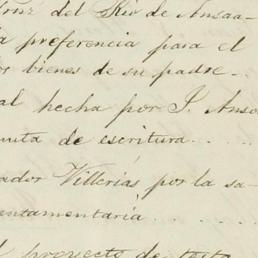 Cruz del Rio de Ansaa-
a preferencia para el
os bienes de su padre..
al hecha por J. Anso
nuta de escritura......
ador Villerias por la sa-
entamentaria........
l proyecto de testa